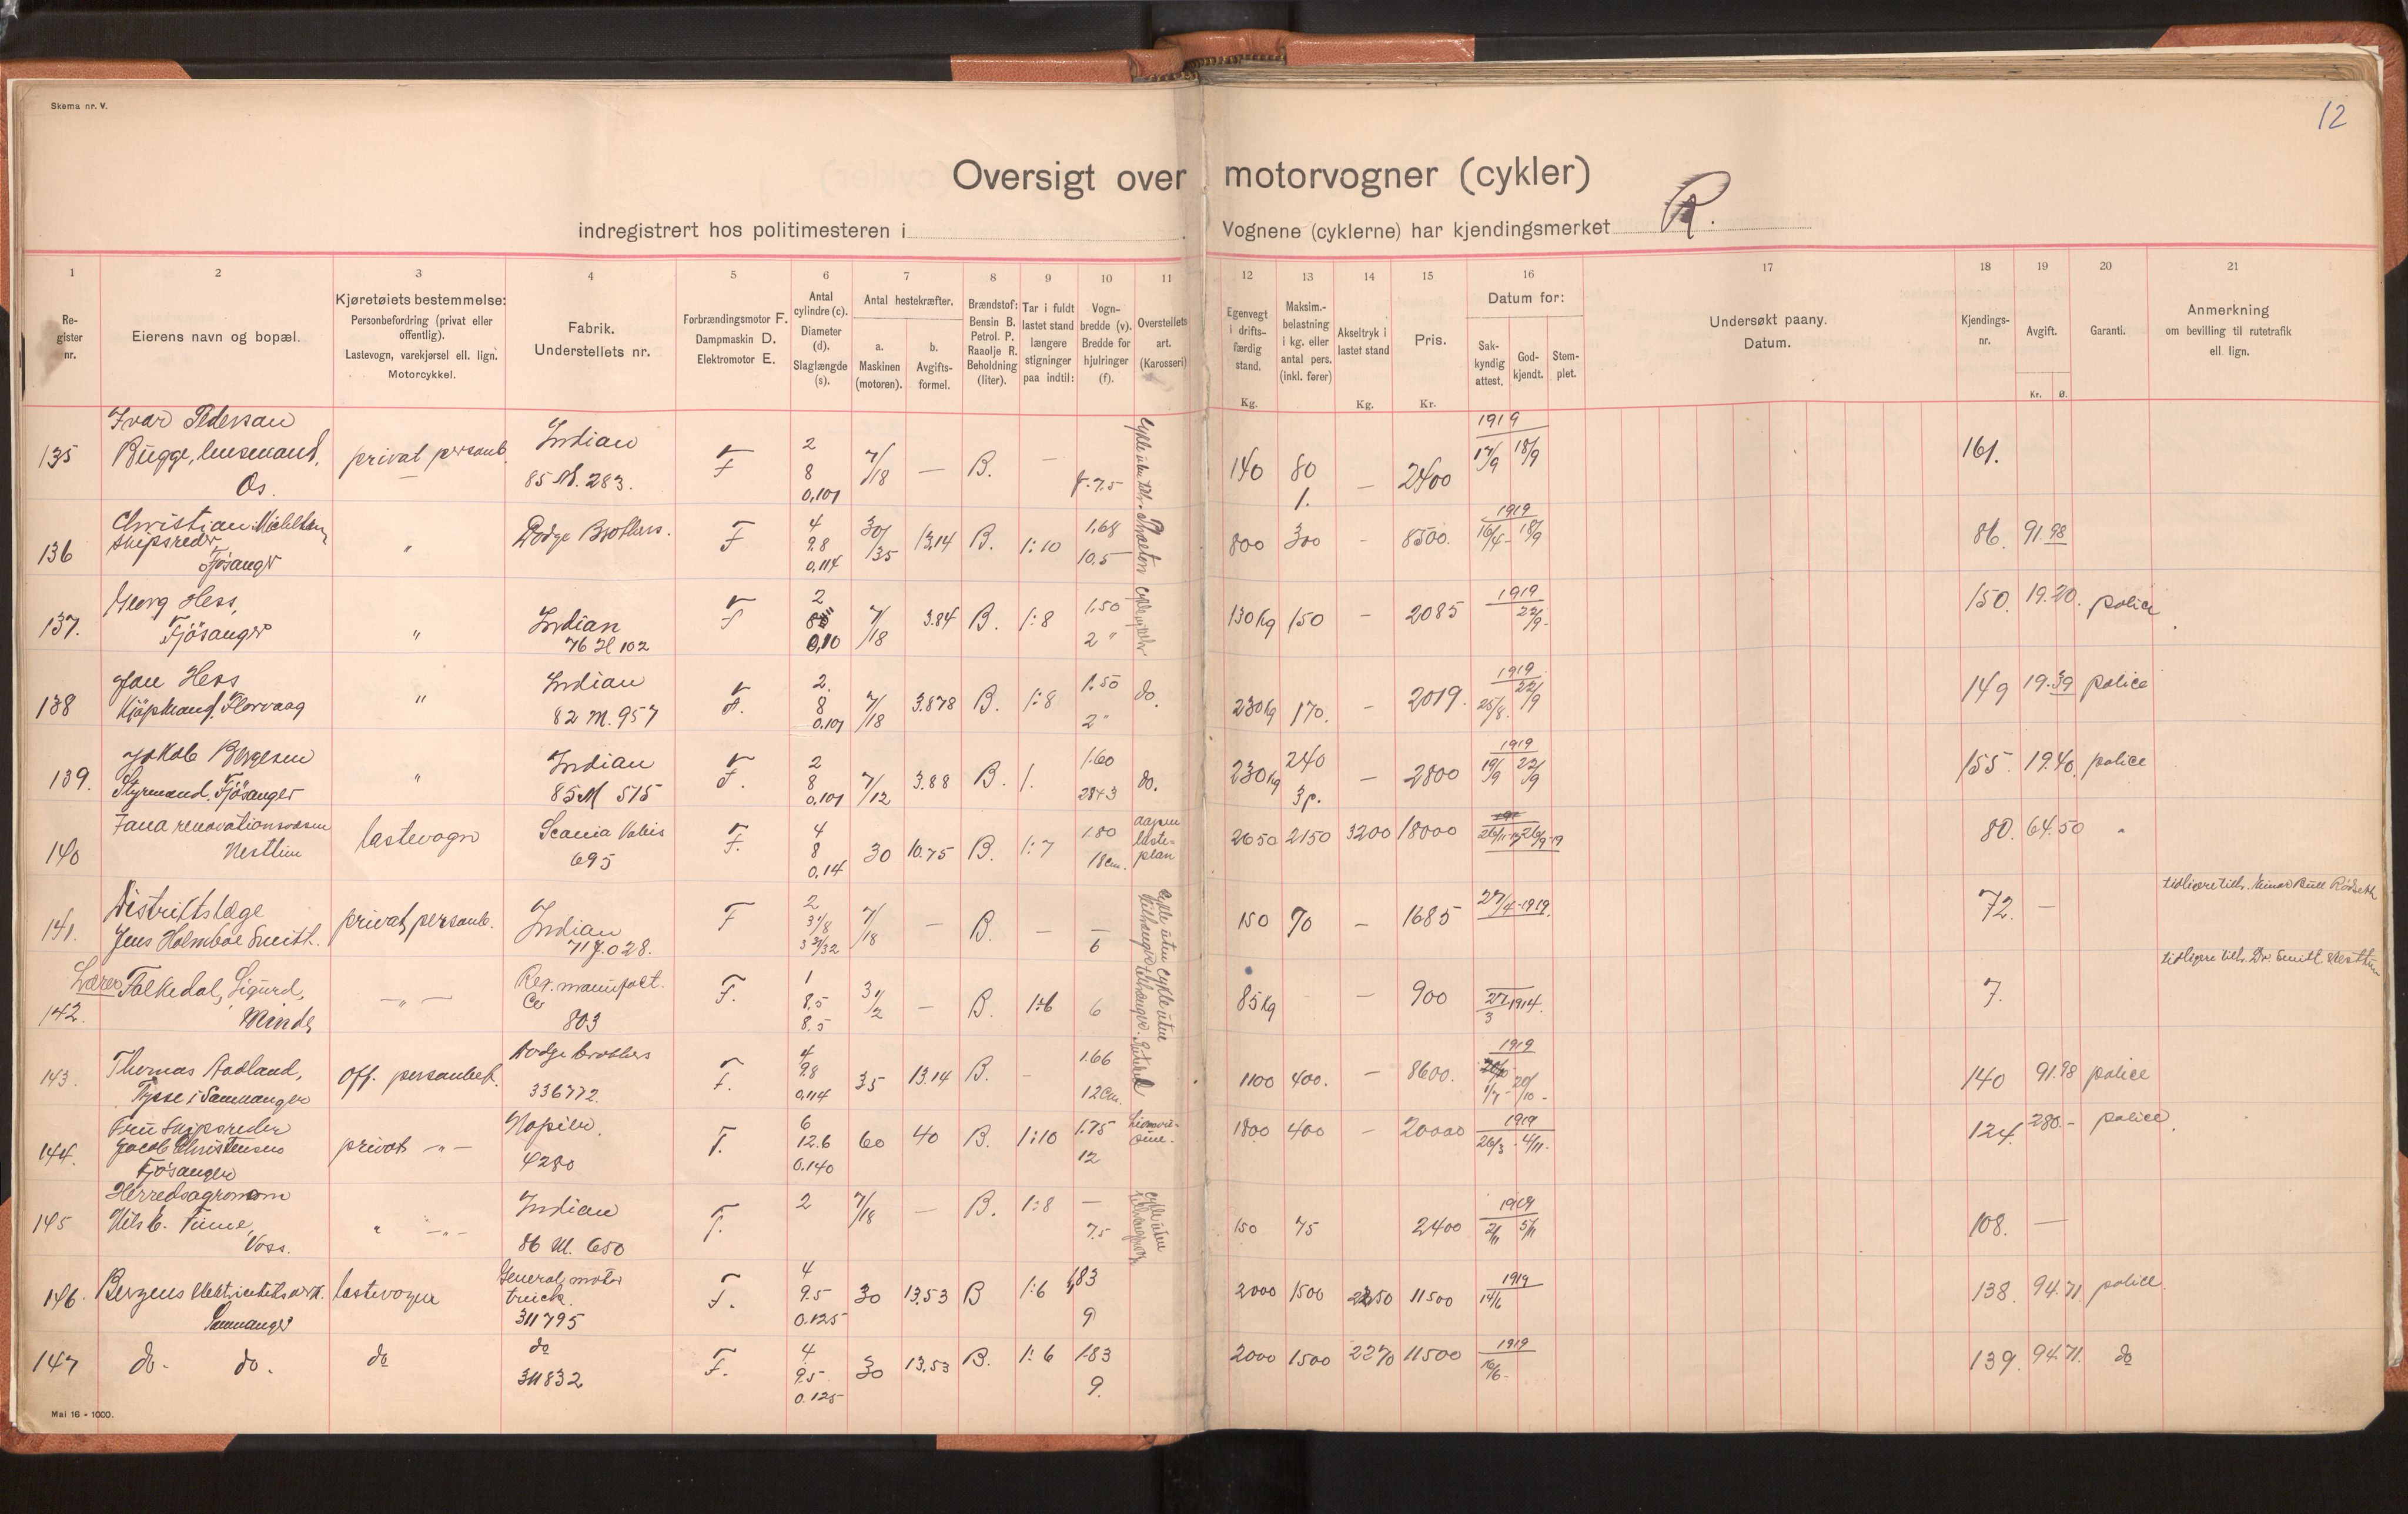 Skema nr. V.
12
Oversigt over motorvogner (cykler)
indregistrert hos politimesteren i . Vognene (cyklerne) har kjendingsmerket R.
1 2 3 4 5 6 7 8 9 10 11 12 13 14 15 16 17 18 19 20 21
Register nr.
Eierens navn og bopæl.
Kjøretøiets bestemmelse:
Personbefordring (privat eller offentlig).
Lastevogn, varekjørsel ell. lign.
Motorcykkel.
Fabrik.
Understellets nr.
Forbrændingsmotor F.
Dampmaskin D.
Elektromotor E.
Antal cylindre (c).
Diameter (d).
Slaglængde (s).
Antal hestekræfter.
a. Maskinen (motoren).
b. Avgifts-formel.
Brændstof:
Bensin B.
Petrol. P.
Raaolje R.
Beholdning (liter).
Tar i fuldt lastet stand længere stigninger paa indtil:
Vogn-bredde (v).
Bredde for hjulringer (f).
Overstellets art.
(Karosseri)
Egenvegt i drifts-færdig stand.
Kg.
Maksim.-belastning i kg. eller antal pers. (inkl. fører)
Akseltryk i lastet stand
Kg.
Pris.
Kr.
Datum for:
Sak-kyndig attest.
God-kjendt.
Stem-plet.
Undersøkt paany.
Datum.
Kjendings-nr.
Avgift.
Kr. Ø.
Garanti.
Anmerkning
om bevilling til rutetrafik
ell. lign.
135 Ivar Pedersan Bugge, lensmand, Os. privat personb. Indian 85 M. 283. F 2 8 0,101 7/18 — B. — f. 7.5 140 80 1. — 2400 1919 17/9 18/9 161.
136 Christian Michelsen skipsreder, Fjøsanger " Dodge Brothers. F 4 9.8 0,114 30/35 13.14 B. 1:10 1.68 10.5 Phaeton 800 300 - 8500. 1919 16/4 - 18/9 86. 91.98
137. Georg Hess, Fjøsanger " Indian 76 H 102 F 2 0,10 7/18 3.84 B. 1:8 1.50 2" 130 Kg 150 - 2085 1919 22/9- 150. 19.20. police
138 Jan Hess Kjøpmand. Florvaag " Indian 82 M. 957 F. 2. 8 0.101 7/18 3.878 B. 1:8 1.50 2" do. 230 Kg 170. - 2019. 1919 25/8. 22/9 149 19.39 police
139. Jakob Bergesen Styrmand. Fjøsanger " Indian 85 M 515 F. 2 8 0,101 7/12 3.88 B. 1. 1.60 2843 do. 230 Kg 240 3 p. — 2800 1919 19/9 22/9 155. 19.40. police
140 Fana renovationsvæsen Nesttun lastevogn Scania Vabis 695 F. 4 8 0,14 30 10.75 B. 1:7 1.80 18 cm. aapen laste-plan 2650 2150 3200 18000 80. 64.50 "
141. Distriktslæge Jens Holmboe Smith. privat personb. Indian 71 J. 028. F 2 3 1/8 3 31/32 7/18 — B. — — 6 150 70 — 1685 27/4-1919. 72. —
142. Lærer Falkedal, Sigurd, Minde — " — 803 F. 1 8.5 8.5 3 1/2 — B. 1:6 6 85 Kg - - 900 27/3 1914. 7. tidligere tilh. Dr. Smith. Nesttun
143. Thomas Aadland, Tysse i Samnanger Off. personbef. Dodge brothers 336772. F. 4 9.8 0,114 35 13.14 B. - 1.66 12 cm. 1100 400. - 8600. 1919 1/7- 20/10- 140 91.98 police
144. Fru Skipsreder Jacob Christensen Fjøsanger privat — " — Napier. 4280 F. 6 12.6 0.140 60 40 B. 1:10 1.75 12 Limousine. 1800 400 - 20000 1919 26/3 - 4/11- 124. 280.- police.
145 Herredsagronom Nils E. Finne, Voss. " — " — Indian 86 M. 650 F. 2 7/18 — B. 1:8 — 7.5 150 75 2400 1919 2/11 5/11 108. —
146. Bergens elektricitetsverk. Samnanger lastevogn General motor truck. 311795 F. 4 9.5 0.125 30 13.53 B 1:6 1,83 9 2000 1500 2250 11500 1919 14/6 138. 94.71. police.
147 do. do. do do 311832 F. 4 9.5 0.125 30 13.53 B. 1:6 1.83 9. 2000 1500 2270 11500 1919 16/6- 139. 94.71. do
Mai 16 - 1000.